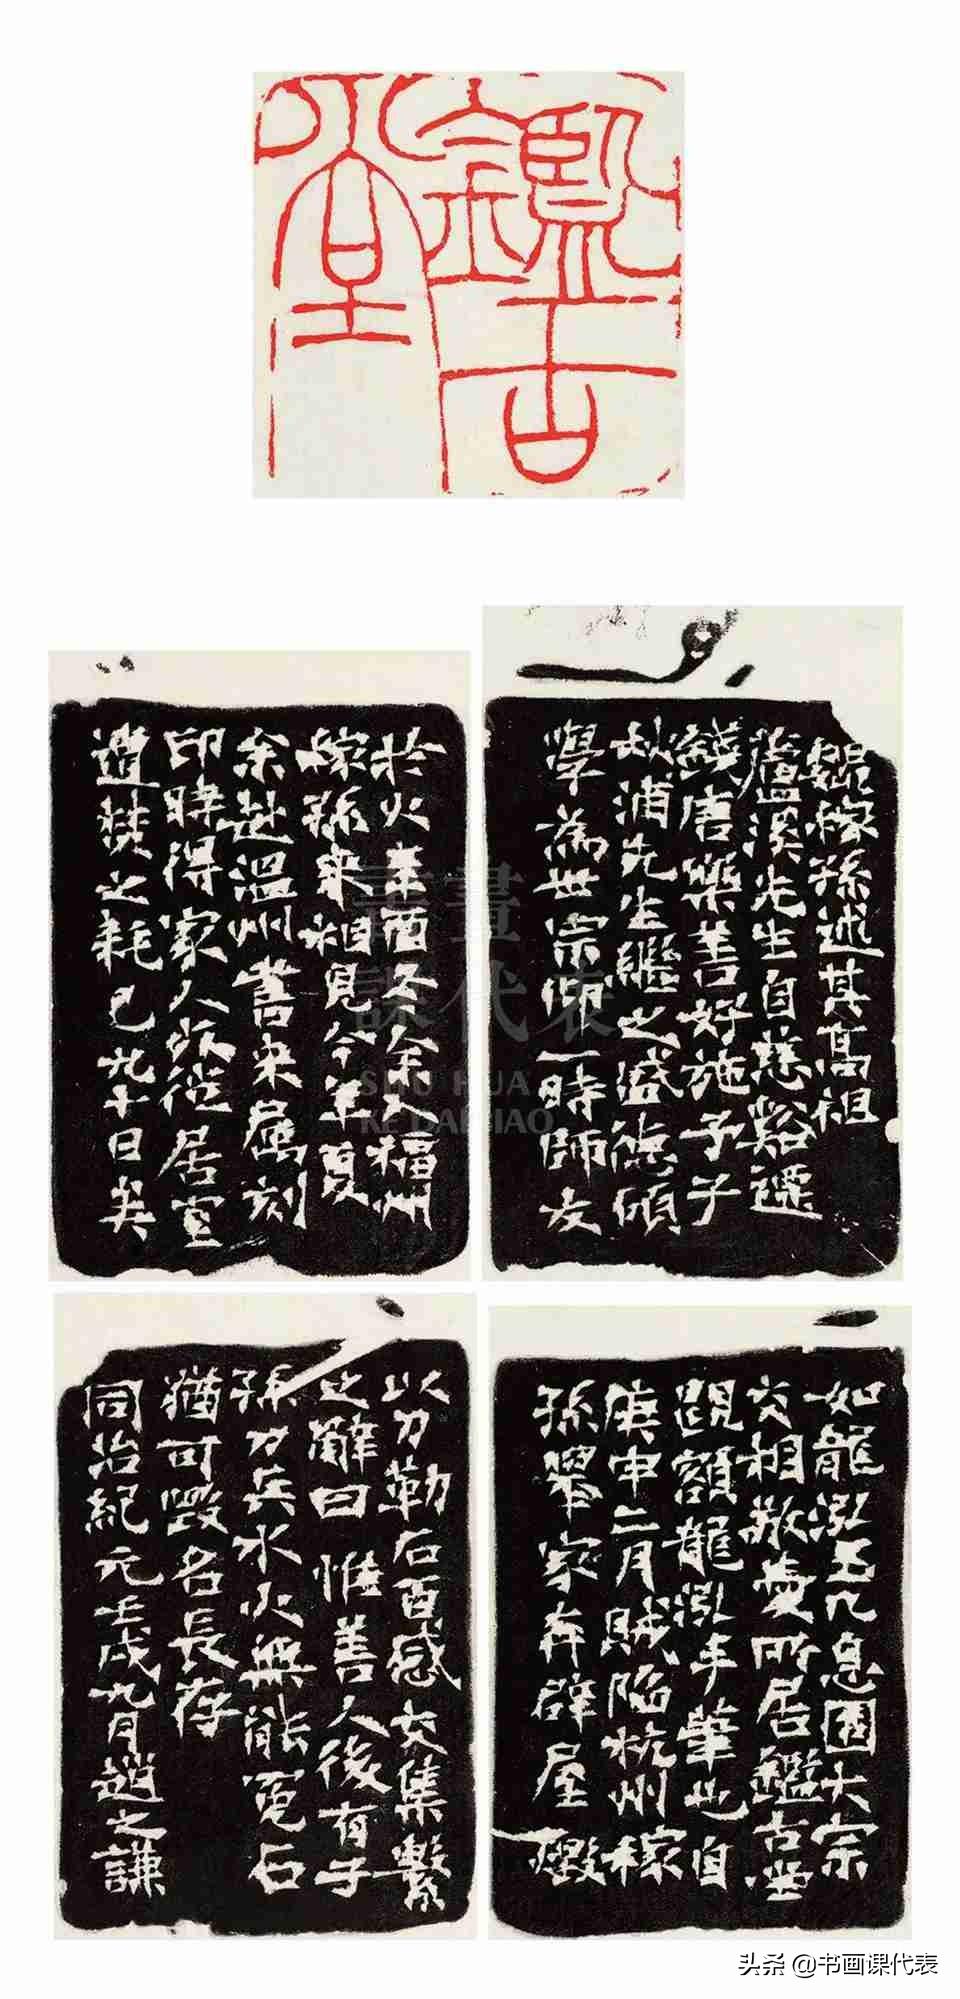 鑑古堂
魏稼孫述其高祖
蘆溪先生自慈谿遷
錢唐樂善好施予子
秋浦先生繼之盛德碩
學為世宗仰一時師友
如龍泓玉几息園大宗
交相敬愛所居鑑古堂
題額龍泓手筆也自
庚申二月賊陷杭州稼
孫舉家奔辟屋燬
於火辛酉冬余入福州
稼孫來相見今年夏
余赴溫州書來屬刻
印時得家人故徙居室
遭焚之耗已九十日矣
以刀勒石百感交集繫
之辭曰 惟善人後有子
孫刀兵水火無能冤石
猶可毀名長存
同治紀元壬戌九月趙之謙
書畫
課代表
SHU HUA
KE DAIBIAO
头条 @书画课代表